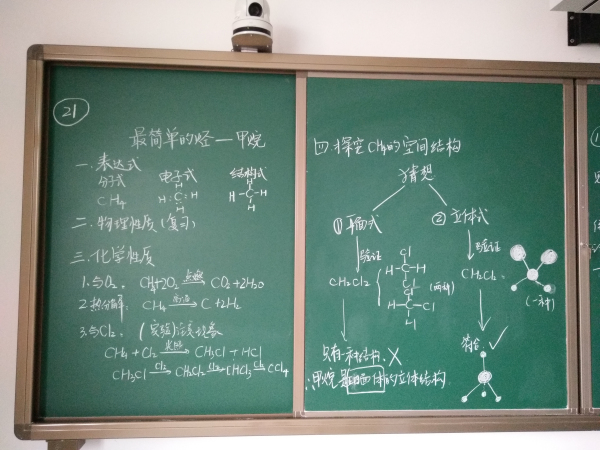 21
最简单的烃—甲烷
一.表达式
分子式 电子式 结构式
CH4
H
H:C:H
H
H
H-C-H
H
二.物理性质(复习)
三.化学性质
1.与O2. CH4+2O2 点燃 CO2+2H2O
2.热分解: CH4 高温 C+2H2
3.与Cl2. (实验)
CH4+Cl2 光照 CH3Cl+HCl
CH3Cl Cl2 CH2Cl2 Cl2 CHCl3 Cl2 CCl4
四.探究CH4的空间结构
猜想
①平面式 ②立体式
验证 验证
CH2Cl2 CH2Cl2
Cl
H-C-H
Cl
Cl
H-C-Cl
H
(两种)
(一种)
只有一种结构.×
符合 ✓
∴甲烷是 体的立体结构